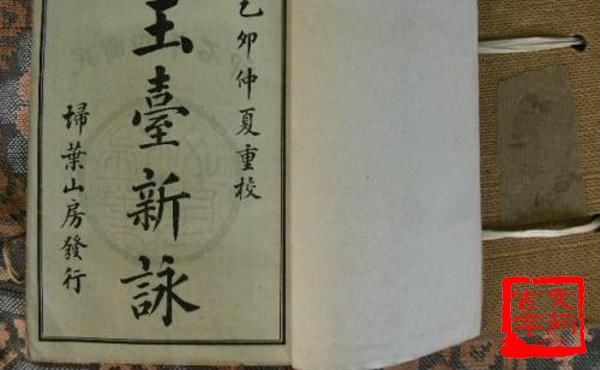 乙卯仲夏重校
玉臺新詠
埽葉山房發行
古文
字网